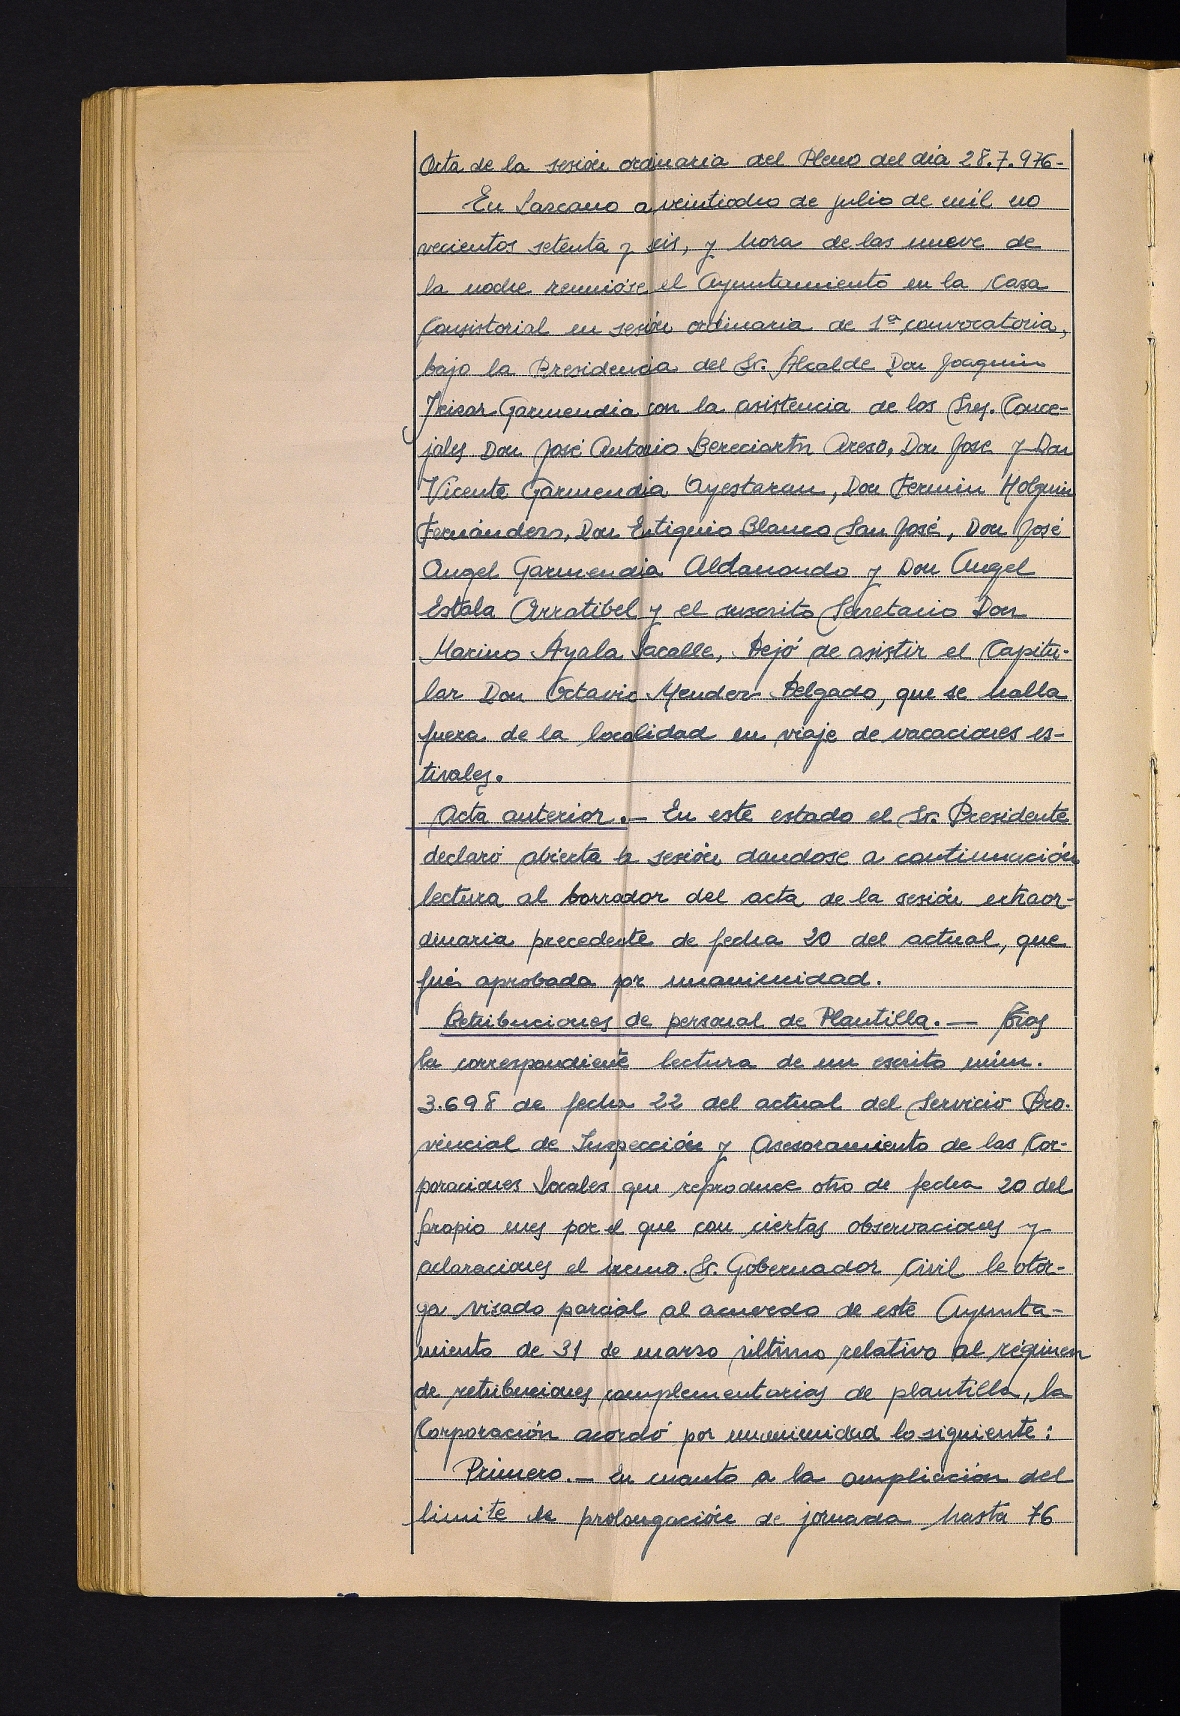 Acta de la sesión ordinaria del Pleno del día 28.7.976-
En Lazcano a veintiocho de julio de mil no
vecientos setenta y seis, y hora de las nueve de
la noche reunióse el Ayuntamiento en la Casa
Consistorial en sesión ordinaria de 1ª convocatoria,
bajo la Presidencia del Sr. Alcalde Don Joaquin
Irizar Garmendia con la asistencia de los Sres. Conce-
jales Don José Antonio Bereciartu Areso, Don Jose y Don
Vicente Garmendia Ayestaran, Don Fermin Holguin
Fernandez, Don Eutiquio Blanco San José, Don José
Angel Garmendia Aldanondo y Don Angel
Estala Arratibel y el suscrito Secretario Don
Marino Ayala Lacalle, Dejó de asistir el Capitu-
lar Don Octavio Mendez Delgado, que se halla
fuera de la localidad en viaje de vacaciones es-
tivales.
Acta anterior.- En este estado el Sr. Presidente
declaró abierta la sesión dandose a continuación
lectura al borrador del acta de la sesión extraor-
dinaria precedente de fecha 20 del actual, que
fué aprobada por unanimidad.
Retribuciones de personal de Plantilla.- Tras
la correspondiente lectura de un escrito núm.
3.698 de fecha 22 del actual del Servicio Pro-
vincial de Inspección y Asesoramiento de las Cor-
poraciones Locales que reproduce otro de fecha 20 del
propio mes por el que con ciertas observaciones y
aclaraciones el Excmo. Sr. Gobernador Civil le otor-
ga visado parcial al acuerdo de este Ayunta-
miento de 31 de marzo último relativo al régimen
de retribuciones complementarias de plantilla, la
Corporación acordó por unanimidad lo siguiente:
Primero.- En cuanto a la ampliación del
limite de prolongación de jornada hasta 76